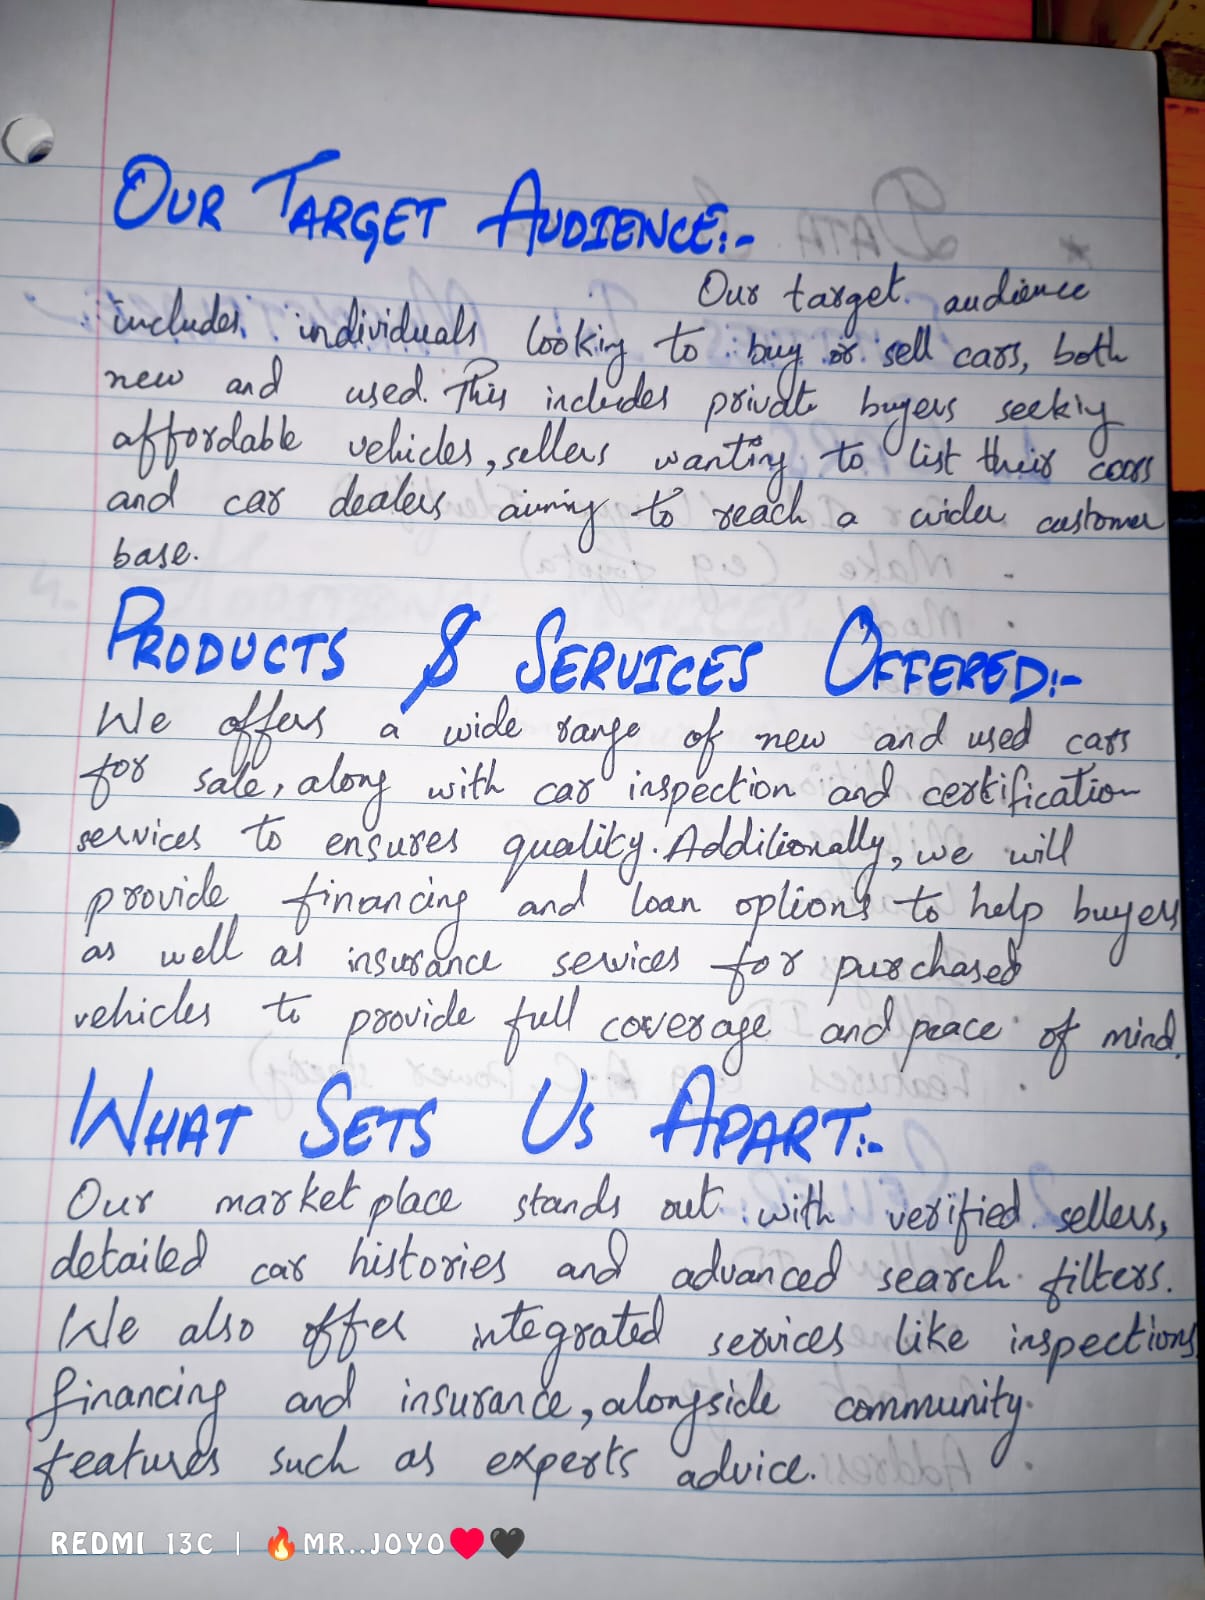 OUR TARGET AUDIENCE:-
Our target audience
includes individuals looking to buy or sell cars, both
new and used. This includes private buyers seeking
affordable vehicles, sellers wanting to list their cars
and car dealers aiming to reach a wider customer
base.
PRODUCTS & SERVICES OFFERED:-
We offers a wide range of new and used cars
for sale, along with car inspection and certification
services to ensures quality. Additionally, we will
provide financing and loan options to help buyers
as well as insurance services for purchased
vehicles to provide full coverage and peace of mind.
WHAT SETS US APART:-
Our market place stands out with verified sellers,
detailed car histories and advanced search filters.
We also offer integrated services like inspections
financing and insurance, alongside community
features such as experts advice.
REDMI 13C | 🔥MR..JOYO❤️🖤